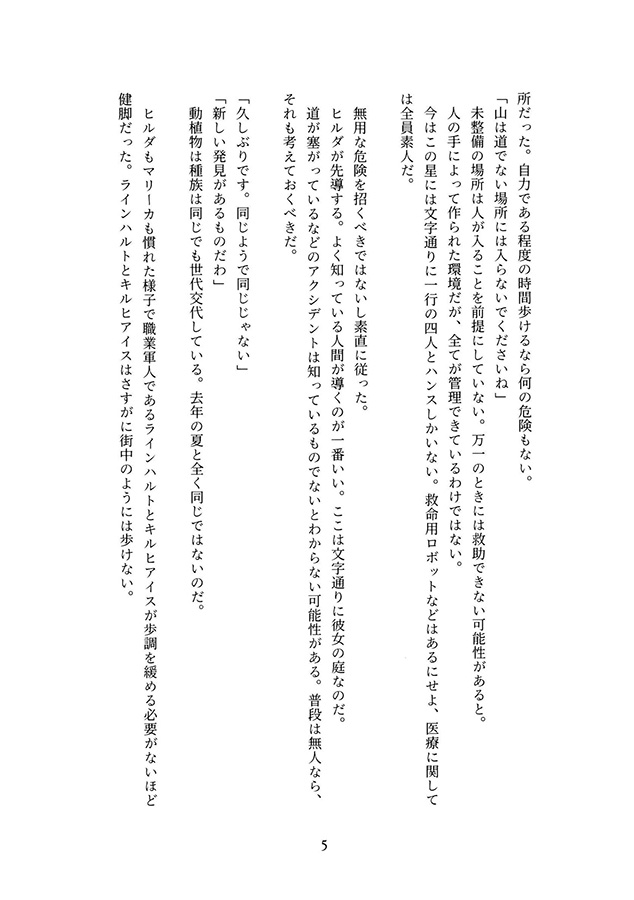 所だった。自力である程度の時間歩けるなら何の危険もない。
「山は道でない場所には入らないでくださいね」
未整備の場所は人が入ることを前提にしていない。万一のときには救助できない可能性があると。
人の手によって作られた環境だが、全てが管理できているわけではない。
今はこの星には文字通りに一行の四人とハンスしかいない。救命用ロボットなどはあるにせよ、医療に関して
は全員素人だ。
無用な危険を招くべきではないし素直に従った。
ヒルダが先導する。よく知っている人間が導くのが一番いい。ここは文字通りに彼女の庭なのだ。
道が塞がっているなどのアクシデントは知っているものでないとわからない可能性がある。普段は無人なら、
それも考えておくべきだ。
「久しぶりです。同じようで同じじゃない」
「新しい発見があるものだわ」
動植物は種族は同じでも世代交代している。去年の夏と全く同じではないのだ。
ヒルダもマリーカも慣れた様子で職業軍人であるラインハルトとキルヒアイスが歩調を緩める必要がないほど
健脚だった。ラインハルトとキルヒアイスはさすがに街中のようには歩けない。
5